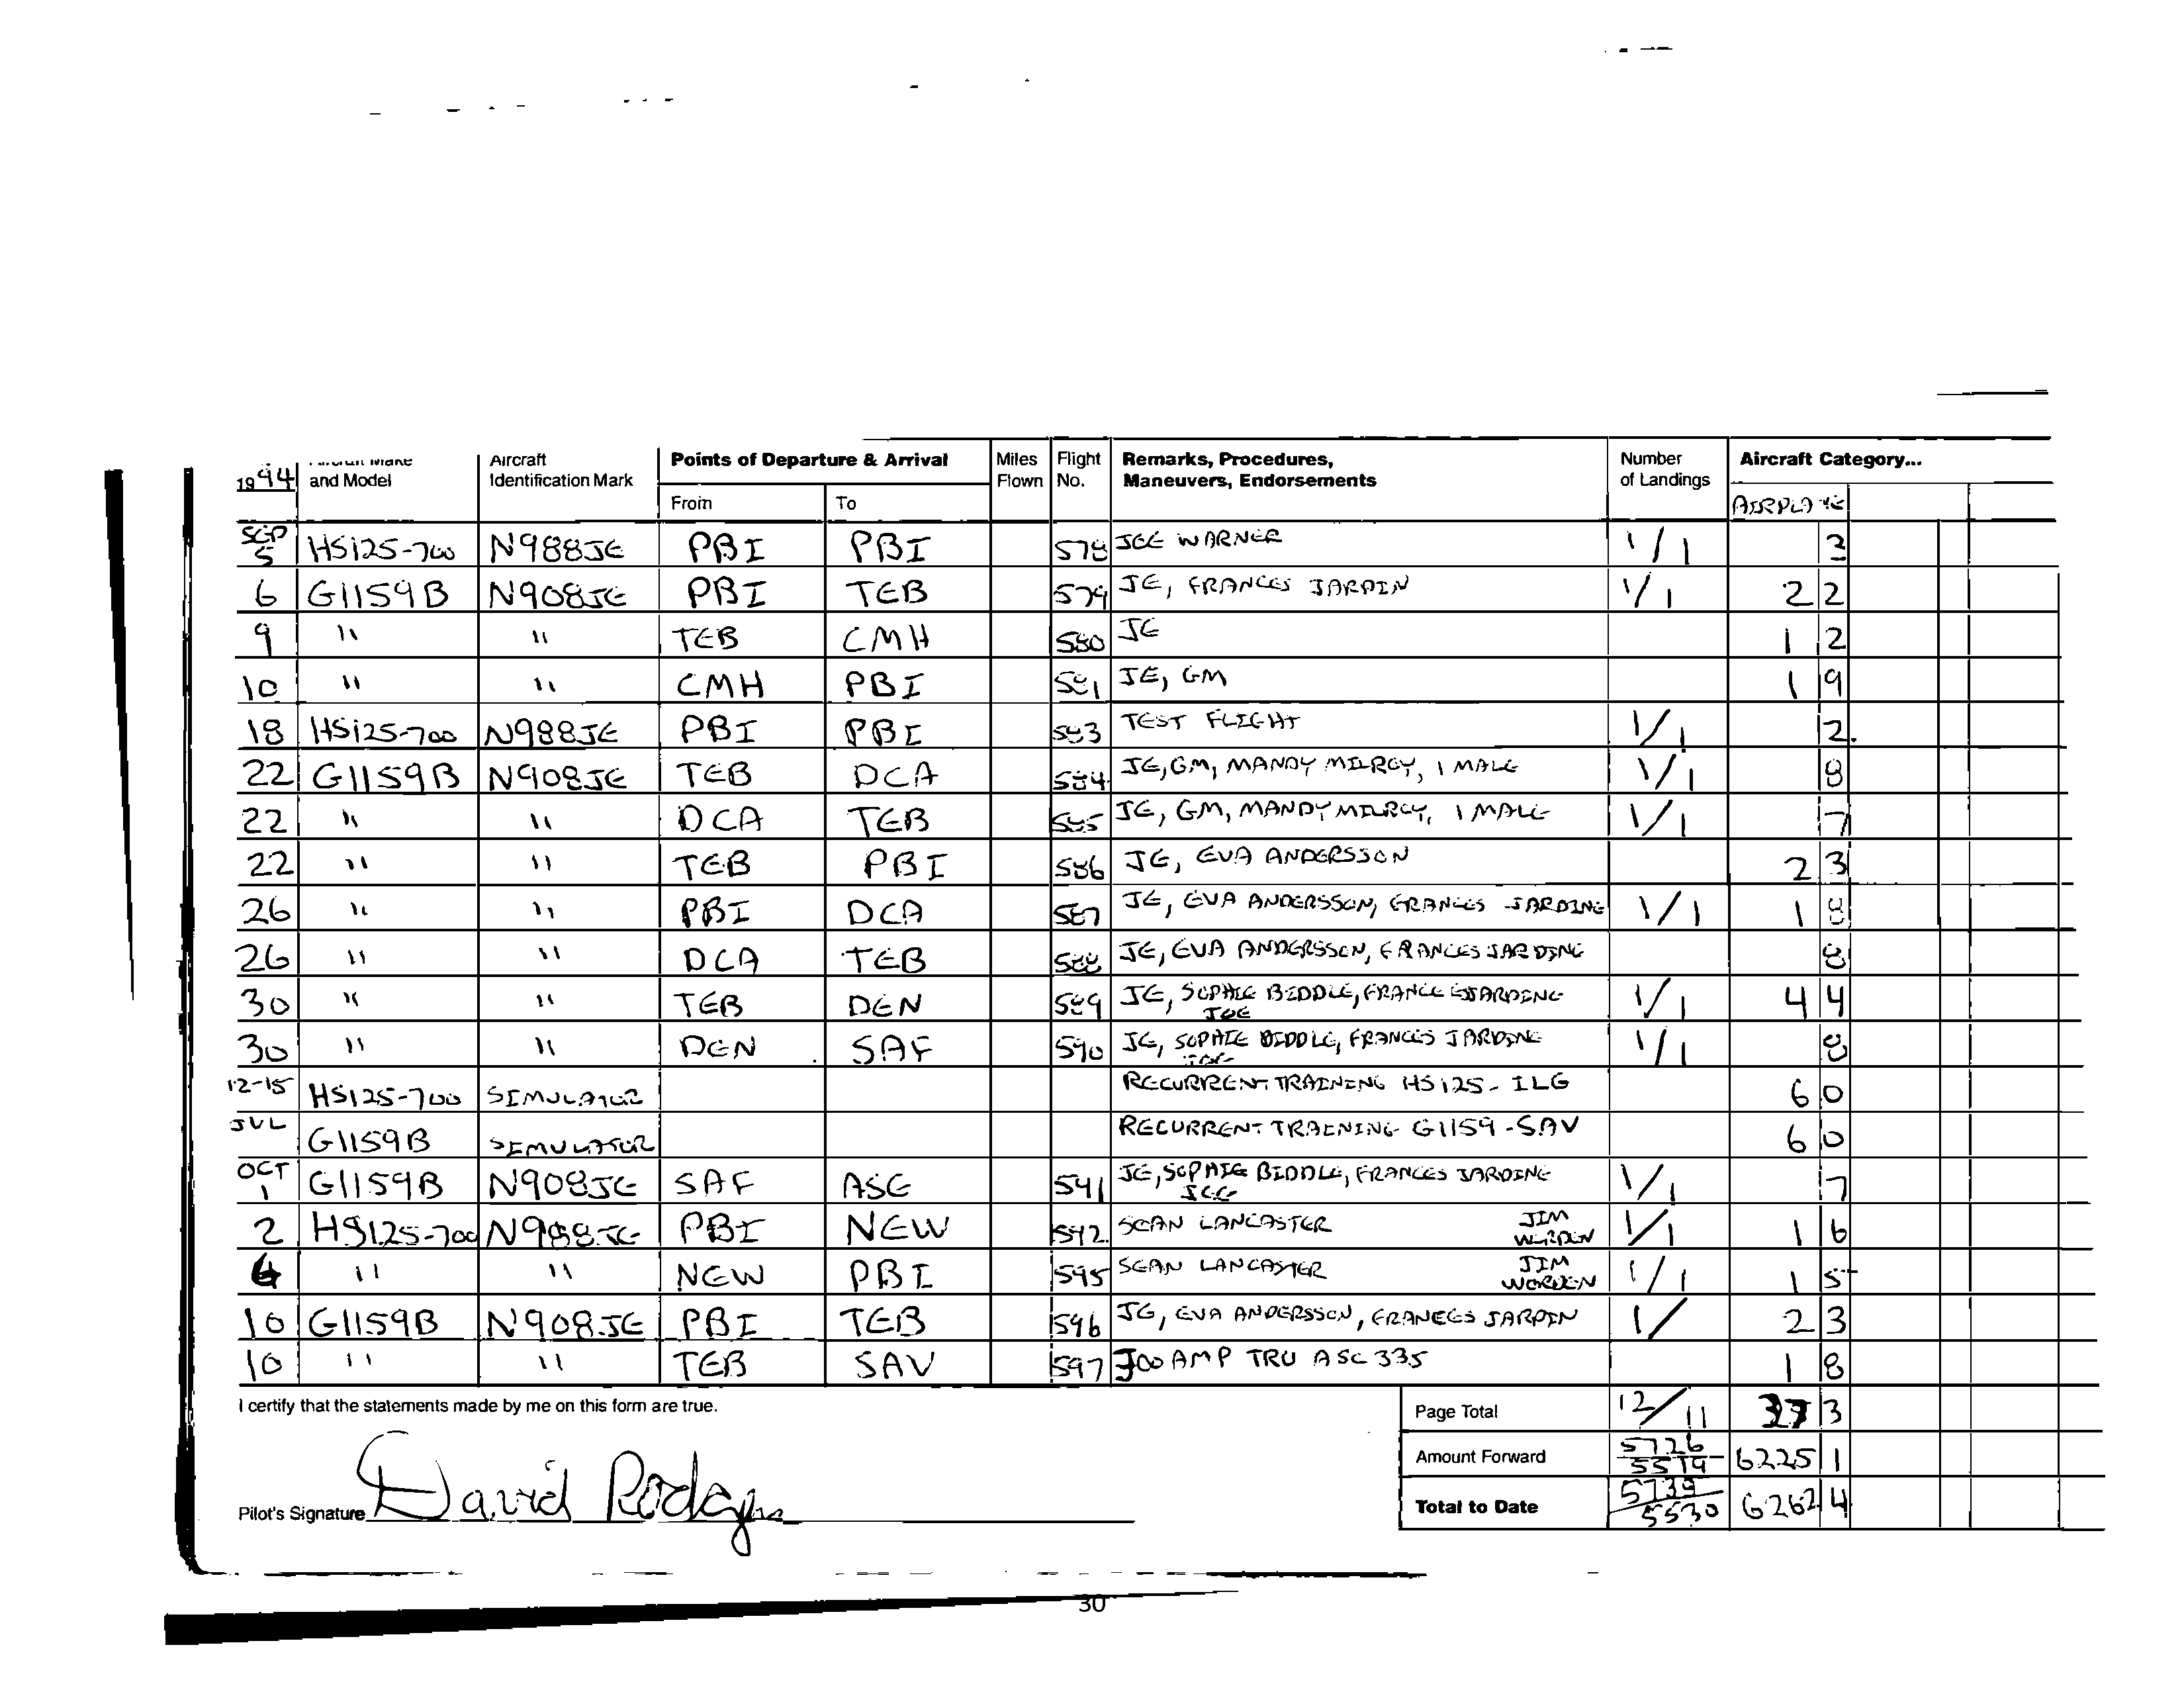 1994 Aircraft Make and Model Aircraft Identification Mark Points of Departure & Arrival Miles Flown Flight No. Remarks, Procedures, Maneuvers, Endorsements Number of Landings Aircraft Category...
From To AIRPLANE
SEP 5 HS125-700 N988JE PBI PBI 578 JEE WARNER 1/1 2
6 G1159B N908JE PBI TEB 579 JE, FRANCES JARDIN 1/1 2 2
9 " " TEB CMH 580 JE 1 2
10 " " CMH PBI 581 JE, GM 1 9
18 HS125-700 N988JE PBI PBI 583 TEST FLIGHT 1/1 2
22 G1159B N908JE TEB DCA 584 JE, GM, MANDY MILRGY, 1 MALE 1/1 8
22 " " DCA TEB 585 JE, GM, MANDY MILRGY, 1 MALE 1/1 7
22 " " TEB PBI 586 JE, EVA ANDERSSON 2 3
26 " " PBI DCA 587 JE, EVA ANDERSSON, FRANCES JARDINE 1/1 1 8
26 " " DCA TEB 588 JE, EVA ANDERSSON, FRANCES JARDINE 8
30 " " TEB DEN 589 JE, SOPHIE BIDDLE, FRANCES JARDINE 1/1 4 4
JOE
30 " " DEN SAF 590 JE, SOPHIE BIDDLE, FRANCES JARDINE 1/1 8
JOE
12-15 HS125-700 SIMULATOR RECURRENT TRAINING HS125 - ILG 6 0
JUL G1159B SIMULATOR RECURRENT TRAINING G1159 - SAV 6 0
OCT 1 G1159B N908JE SAF ASE 591 JE, SOPHIE BIDDLE, FRANCES JARDINE 1/1 7
JOE
2 HS125-700 N988JE PBI NEW 592 SEAN LANCASTER JIM WORDEN 1/1 1 6
4 " " NEW PBI 595 SEAN LANCASTER JIM WORDEN 1/1 1 5
10 G1159B N908JE PBI TEB 596 JE, EVA ANDERSSON, FRANCES JARDIN 1/ 2 3
10 " " TEB SAV 597 300 AMP TRU ASC 335 1 8
I certify that the statements made by me on this form are true.
Page Total 12/11 37 3
Amount Forward 5726/5519 6225 1
Pilot's Signature David Rodgers
Total to Date 5738/5530 6262 4
30